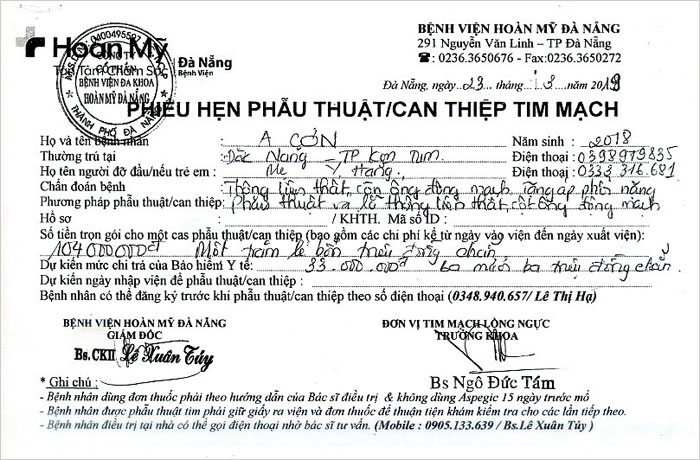 BỆNH VIỆN HOÀN MỸ ĐÀ NẴNG
291 Nguyễn Văn Linh – TP Đà Nẵng
☎: 0236.3650676 - Fax:0236.3650272
Hoàn Mỹ
Tận Tâm Chăm Sóc
Đà Nẵng
Bệnh Viện
0400495597
CÔNG TY
CỔ PHẦN
BỆNH VIỆN ĐA KHOA
HOÀN MỸ ĐÀ NẴNG
THÀNH PHỐ ĐÀ NẴNG
Đà Nẵng, ngày 23 tháng 3 năm 2019
PHIẾU HẸN PHẪU THUẬT/CAN THIỆP TIM MẠCH
Họ và tên bệnh nhân : A CỔN Năm sinh : 2018
Thường trú tại : Đăk Nang - TP Kon Tum. Điện thoại : 0398979835
Họ tên người đỡ đầu/nếu trẻ em : Mẹ Y, Hang. Điện thoại : 0333 316 681
Chẩn đoán bệnh : Thông liên thất, còn ống động mạch, tăng áp phổi nặng
Phương pháp phẫu thuật/can thiệp: Phẫu thuật vá lỗ thông liên thất, cắt ống động mạch
Hồ sơ : / KHTH. Mã số ID :
Số tiền trọn gói cho một cas phẫu thuật/can thiệp (bao gồm các chi phí kể từ ngày vào viện đến ngày xuất viện):
104 000 000đ Một trăm lẻ bốn triệu đồng chẵn
Dự kiến mức chi trả của Bảo hiểm Y tế: 33.000.000đ ba mươi ba triệu đồng chẵn.
Dự kiến ngày nhập viện để phẫu thuật/can thiệp :
Bệnh nhân có thể đăng ký trước khi phẫu thuật/can thiệp theo số điện thoại (0348.940.657/ Lê Thị Hạ)
BỆNH VIỆN HOÀN MỸ ĐÀ NẴNG
GIÁM ĐỐC
Bs.CKII Lê Xuân Túy
ĐƠN VỊ TIM MẠCH LỒNG NGỰC
TRƯỞNG KHOA
Bs Ngô Đức Tấm
* Ghi chú :
- Bệnh nhân dùng đơn thuốc phải theo hướng dẫn của Bác sĩ điều trị & không dùng Aspegic 15 ngày trước mổ
- Bệnh nhân được phẫu thuật tim phải giữ giấy ra viện và đơn thuốc để thuận tiện khám kiểm tra cho các lần tiếp theo.
- Bệnh nhân điều trị tại nhà có thể gọi điện thoại nhờ bác sĩ tư vấn. (Mobile : 0905.133.639 / Bs.Lê Xuân Túy )